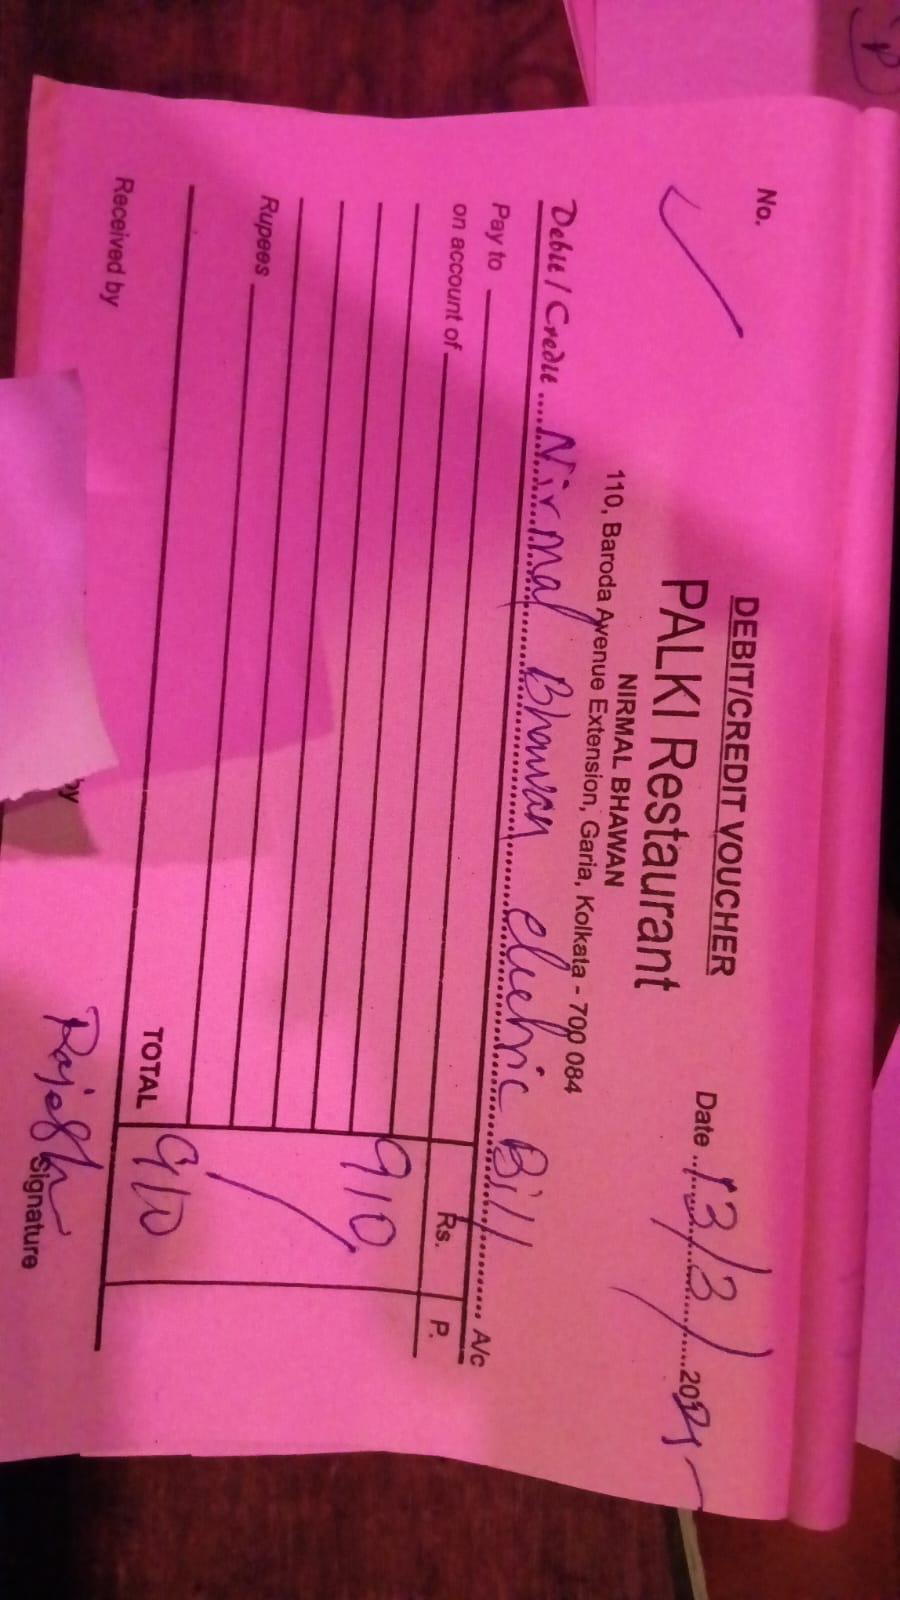 No.
DEBIT/CREDIT VOUCHER
PALKI Restaurant
Date 13/3/2025
NIRMAL BHAWAN
110, Baroda Avenue Extension, Garia, Kolkata - 700 084
Debit / Credit Nirmal Bhawan electric Bill A/c
Pay to
on account of Rs. P.
910
Rupees
TOTAL 910
Rajesh
Received by by Signature